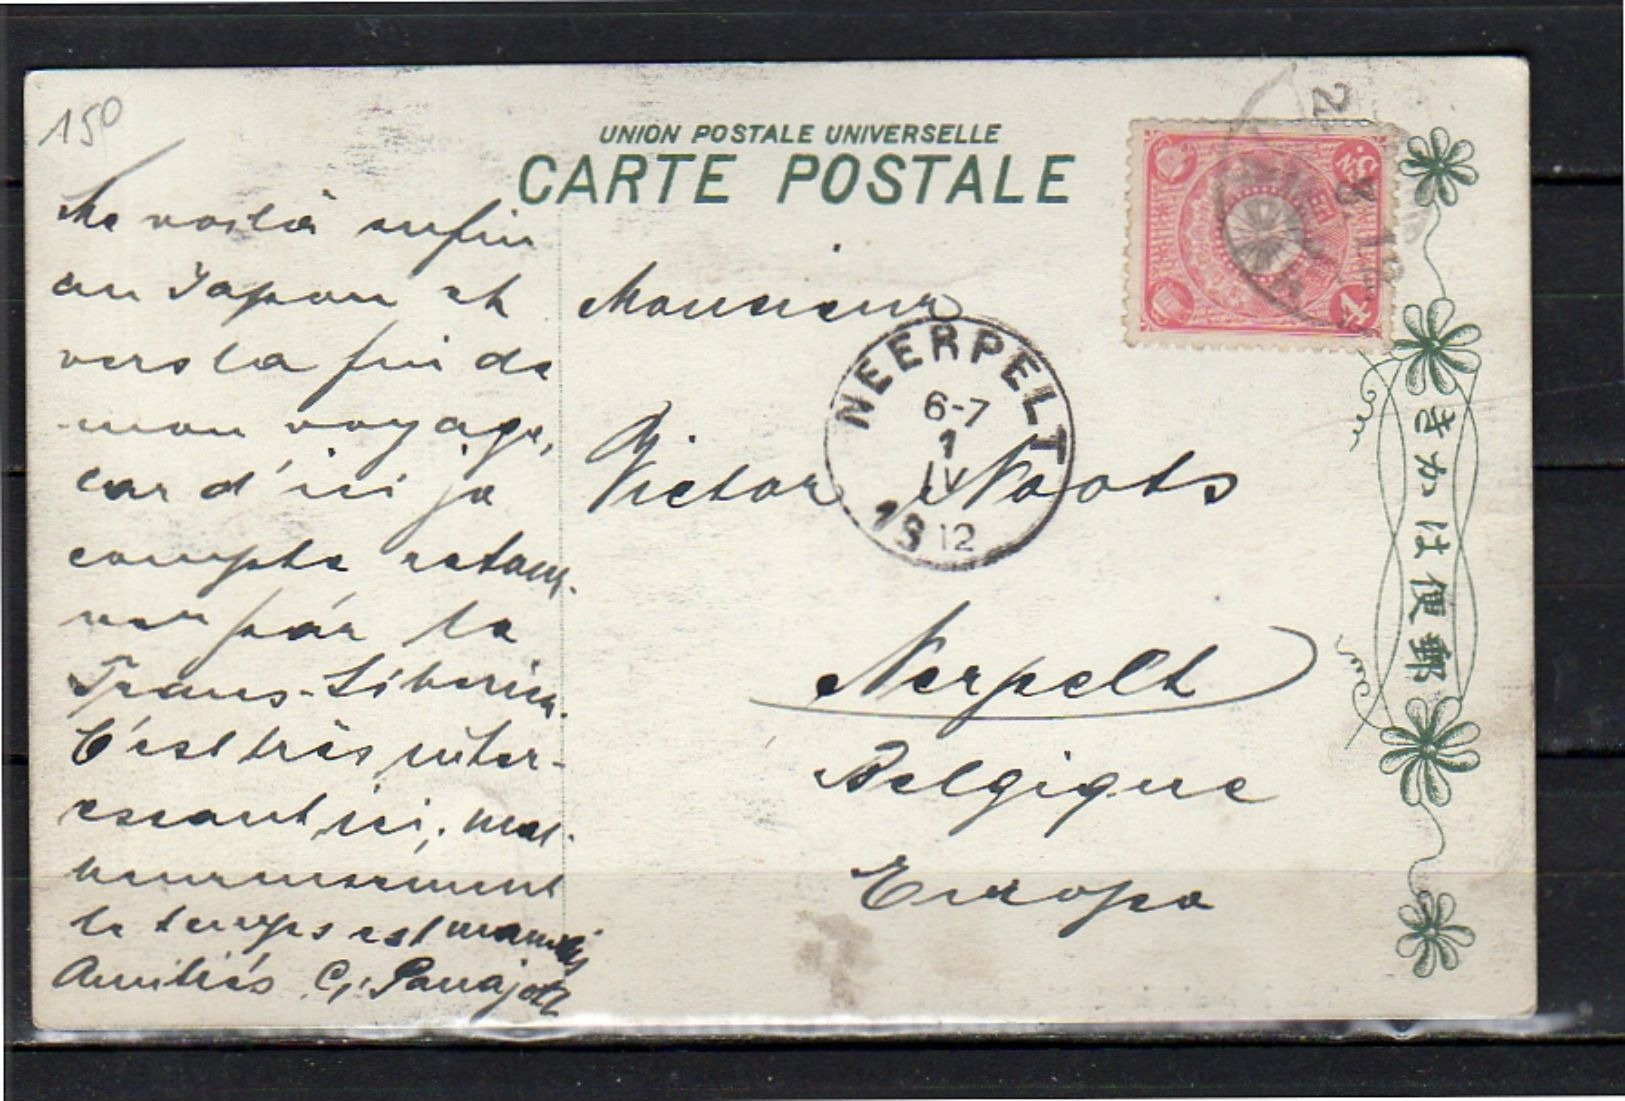 150
UNION POSTALE UNIVERSELLE
CARTE POSTALE
Me voilà enfin
au Japon et
vers la fin de
mon voyage,
car d'ici je
compte retour-
ner par le
Trans-Sibérien.
C'est très inter-
essant ici, mal-
heureusement
le temps est mauvais
Amitiés C.
Monsieur
Victor Noots
Nerpelt
Belgique
Europa
NEERPELT
6-7
1
IV
1912
4
SN.
郵便はかき